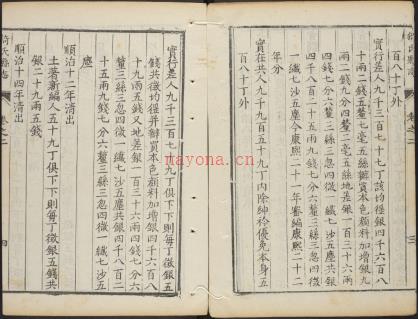 百八十丁外
實行差人九千三百七十九丁該均徭銀四千六百八
十兩二錢五分五釐七毫五絲辦買本色顏料加增銀九
兩二錢九分四釐二毫二五絲地差銀一百三十六兩
四錢七分六釐三絲三忽四微共銀四千八百二十五兩
四千八百二十五兩九錢七分六釐三絲三忽四微
一纖七沙五塵今康熙二十一年審編康熙二十二
年分
實在共人九千九百五十九丁內除紳衿優免本身五
百八十丁外
實行差人九千三百七十九丁每丁徵銀五
錢共均徭并辦買本色顏料加增銀四千六百八
十九兩五錢又地差銀一百三十六兩四錢七分六
釐三絲三忽四微一纖七沙五塵共銀四千八百二
十五兩九錢七分六釐三絲三忽四微一纖七沙五
塵
順治十二年清出
土著新編人五十九丁俱下下則每丁徵銀五錢共
銀二十九兩五錢
順治十四年清出
卷之二
三
卷之二
四
nayona.cn